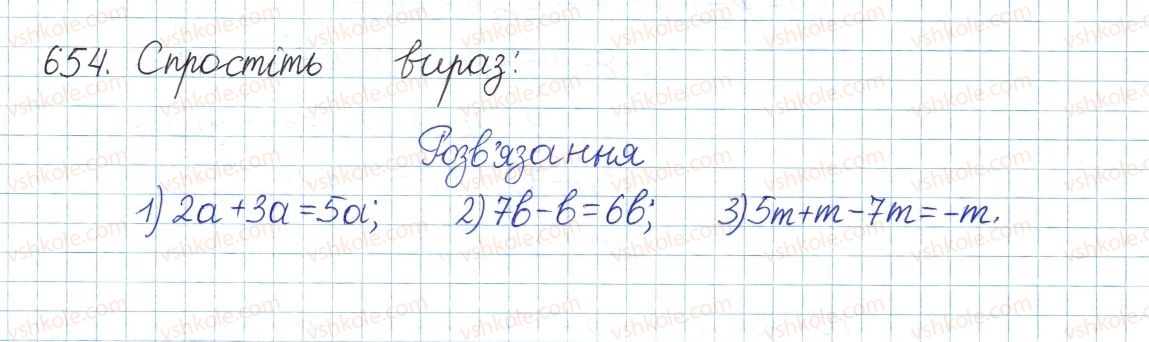 654. Спростіть вираз:
Розв'язання
1) 2a+3a=5a; 2) 7b-b=6b; 3) 5m+m-7m=-m.